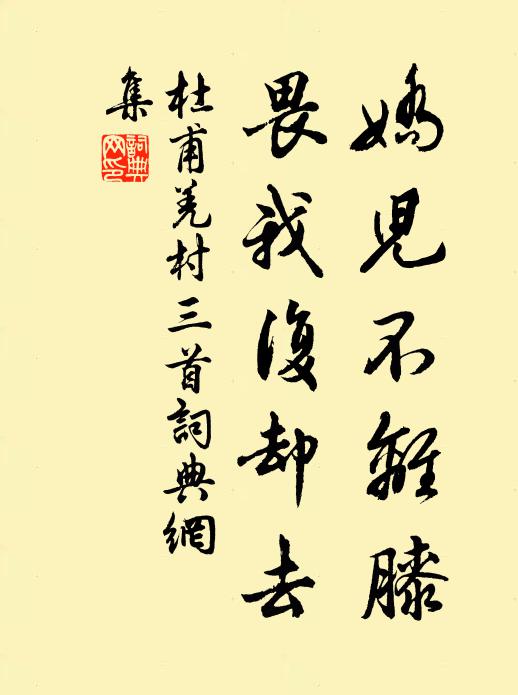 嬌兒不離膝
畏我復却去
杜甫羌村三首詞典網
集
詞典
网